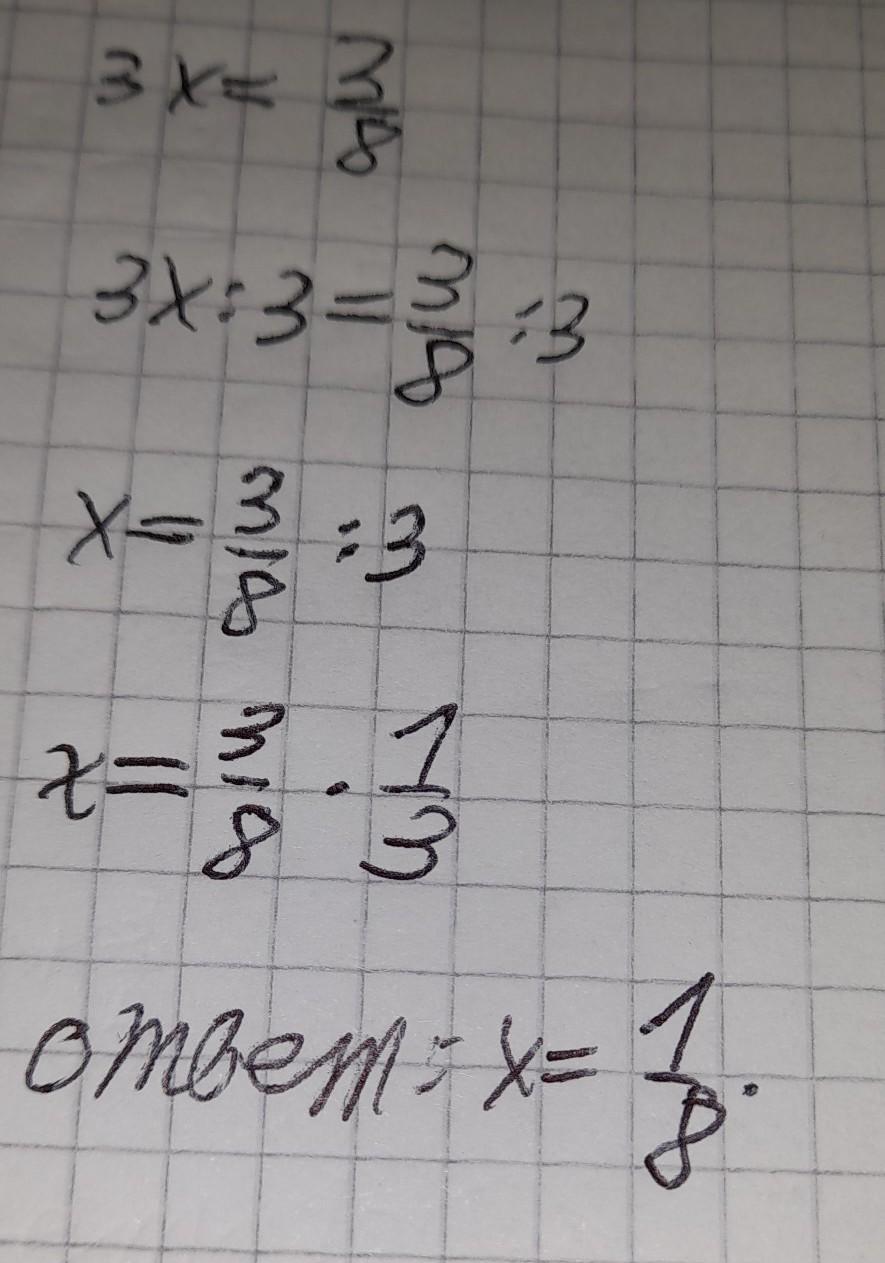 3x = 3/8
3x : 3 = 3/8 : 3
x = 3/8 : 3
x = 3/8 · 1/3
ответ: x = 1/8.